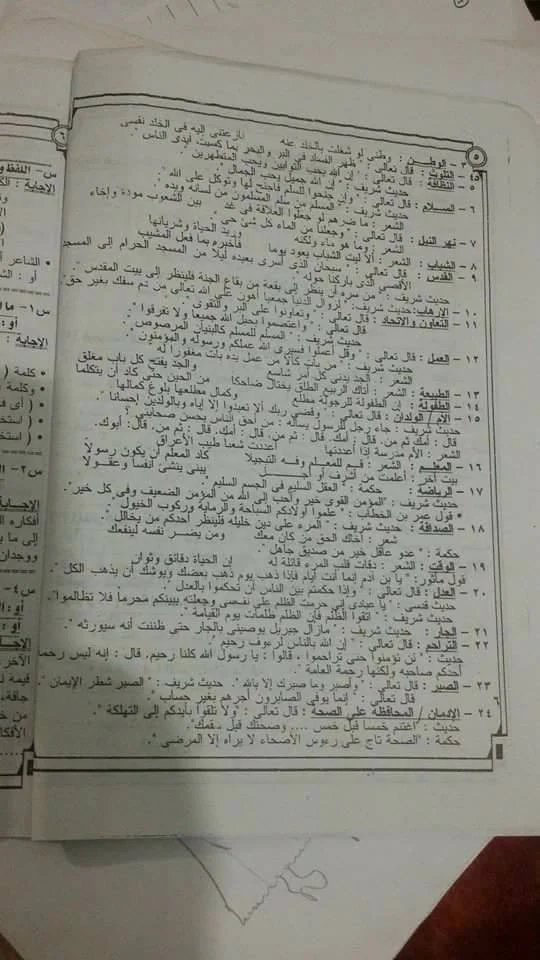 ٥
٣ - الوطن : وطنى لو شغلت بالخلد عنه نازعتنى إليه فى الخلد نفسى
٤ - التلوث : قال تعالى : " ظهر الفساد فى البر والبحر بما كسبت أيدى الناس ".
٥ - النظافة : قال تعالى : " إن الله يحب التوابين ويحب المتطهرين ".
حديث شريف : " إن الله جميل يحب الجمال "
٦ - السلام : قال تعالى : " وإن جنحوا للسلم فاجنح لها وتوكل على الله ".
حديث شريف : " المسلم من سلم المسلمون من لسانه ويده ".
الشعر : ما ضرهم لو جعلوا العلاقة فى غد بين الشعوب مودة وإخاء
٧ - نهر النيل : قال تعالى : " وجعلنا من الماء كل شئ حى ".
الشعر : وما هو ماء ولكنه وريد الحياة وشريانها
٨ - الشباب : الشعر : ألا ليت الشباب يعود يوما فأخبره بما فعل المشيب
٩ - القدس : قال تعالى : " سبحان الذى أسرى بعبده ليلا من المسجد الحرام إلى المسجد
الأقصى الذى باركنا حوله "
حديث شريف : " من سره أن ينظر إلى بقعة من بقاع الجنة فلينظر إلى بيت المقدس "
١٠ - الإرهاب: حديث شريف : " لزوال الدنيا جميعا أهون على الله تعالى من دم سفك بغير حق".
١١ - التعاون والاتحاد : قال تعالى : " وتعاونوا على البر والتقوى ".
قال تعالى : " واعتصموا بحبل الله جميعا ولا تفرقوا "
حديث شريف : " المسلم للمسلم كالبنيان المرصوص "
١٢ - العمل : قال تعالى : " وقل اعملوا فسيرى الله عملكم ورسوله والمؤمنون "
حديث شريف : " من بات كالا من عمل يده بات مغفورا له
الشعر : الجد يدنى كل أمر شاسع والجد يفتح كل باب مغلق
١٣ - الطبيعة : الشعر : أتاك الربيع الطلق يختال ضاحكا من الحسن حتى كاد أن يتكلما
١٤ - الطفولة : إن الطفولة للرجولة مطلع وكمال مطلعها بلوغ كمالها
١٥ - الأم / الوالدان : قال تعالى : " وقضى ربك ألا تعبدوا إلا إياه وبالوالدين إحسانا ".
حديث شريف : جاء رجل للرسول يسأله : من أحق الناس بحسن صحابتى ؟
قال : أمك ثم من. قال : أمك. قال : ثم من. قال : أمك. قال : ثم من. قال : أبوك.
الشعر : الأم مدرسة إذا أعددتها أعددت شعبا طيب الأعراق
١٦ - المعلم : الشعر : قم للمعلم وفه التبجيلا كاد المعلم أن يكون رسولا
بيت آخر : أعلمت من أشرف أو أجل من الذى يبنى ينشى أنفسا وعقولا
١٧ - الرياضة : حكمة : " العقل السليم فى الجسم السليم ".
حديث شريف : " المؤمن القوى خير وأحب إلى الله من المؤمن الضعيف وفى كل خير".
• قول عمر بن الخطاب : " علموا أولادكم السباحة والرماية وركوب الخيول "
١٨ - الصداقة : حديث شريف : " المرء على دين خليله فلينظر أحدكم من يخالل ".
شعر : أخاك الحق من كان معك ومن يضر نفسه لينفعك
حكمة : " عدو عاقل خير من صديق جاهل ".
١٩ - الوقت : الشعر : دقات قلب المرء قائلة له إن الحياة دقائق وثوان
قول مأثور : " يا بن آدم إنما أنت أيام فإذا ذهب يوم ذهب بعضك ويوشك أن يذهب الكل ".
٢٠ - العدل : قال تعالى : " وإذا حكمتم بين الناس أن تحكموا بالعدل ".
حديث قدسى : " يا عبادى إنى حرمت الظلم على نفسى وجعلته بينكم محرما فلا تظالموا".
حديث شريف : " اتقوا الظلم فإن الظلم ظلمات يوم القيامة "
٢١ - الجار : حديث شريف : " مازال جبريل يوصينى بالجار حتى ظننت أنه سيورثه ".
٢٢ - التراحم : قال تعالى : " إن الله بالناس لرءوف رحيم
حديث : " لن تؤمنوا حتى تراحموا ، قالوا : يا رسول الله كلنا رحيم. قال : إنه ليس رحمة
أحدكم صاحبه ولكنها رحمة العامة "
٢٣ - الصبر : قال تعالى : " واصبر وما صبرك إلا بالله ". حديث شريف : " الصبر شطر الإيمان ".
قال تعالى : " إنما يوفى الصابرون أجرهم بغير حساب ".
٢٤ - الإدمان / المحافظة على الصحة : قال تعالى : " ولا تلقوا بأيدكم إلى التهلكة "
حديث : " اغتنم خمسا قبل خمس .... وصحتك قبل سقمك".
حكمة : " الصحة تاج على رءوس الأصحاء لا يراه إلا المرضى ".
٦
س - اللفظ و
الإجابة :
• الشاعر أ
أو : الش
س١ - ما ا
أو :
الإجابة :
• كلمة (
• وكلمة
• ( أى ف
• ( استخ
• ( استخ
س٢ -
الإجابة
أفكاره
إلى ما ي
ووجدان
س٤ -
أو :
الإجا
الآخر
قيمة ل
جافة،
من خ
الأفكا